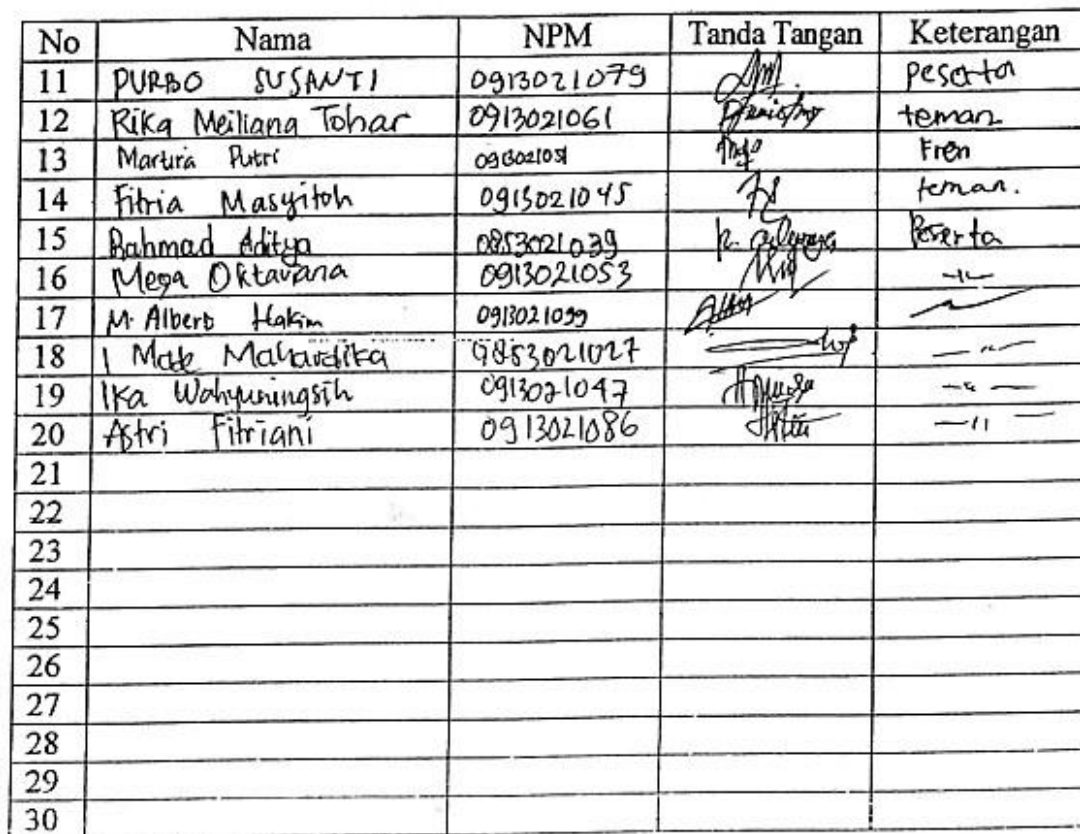 No Nama NPM Tanda Tangan Keterangan
11 PURBO SUSANTI 0913021079 peserta
12 Rika Meiliana Tohar 0913021061 teman
13 Martira Putri Fren
14 Fitria Masyitoh 0913021045 teman.
15 Rahmad Aditya 0853021039 Peserta
16 Mega Oktaviana 0913021053 -"-
17 M. Albert Hakim 0913021099
18 I Made Mahardika 0853021027 -"-
19 Ika Wahyuningsih 0913021047 -"-
20 Astri Fitriani 0913021086 -"-
21
22
23
24
25
26
27
28
29
30